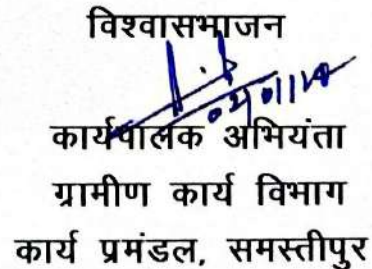 विश्वासभाजन
कार्यपालक अभियंता
ग्रामीण कार्य विभाग
कार्य प्रमंडल, समस्तीपुर